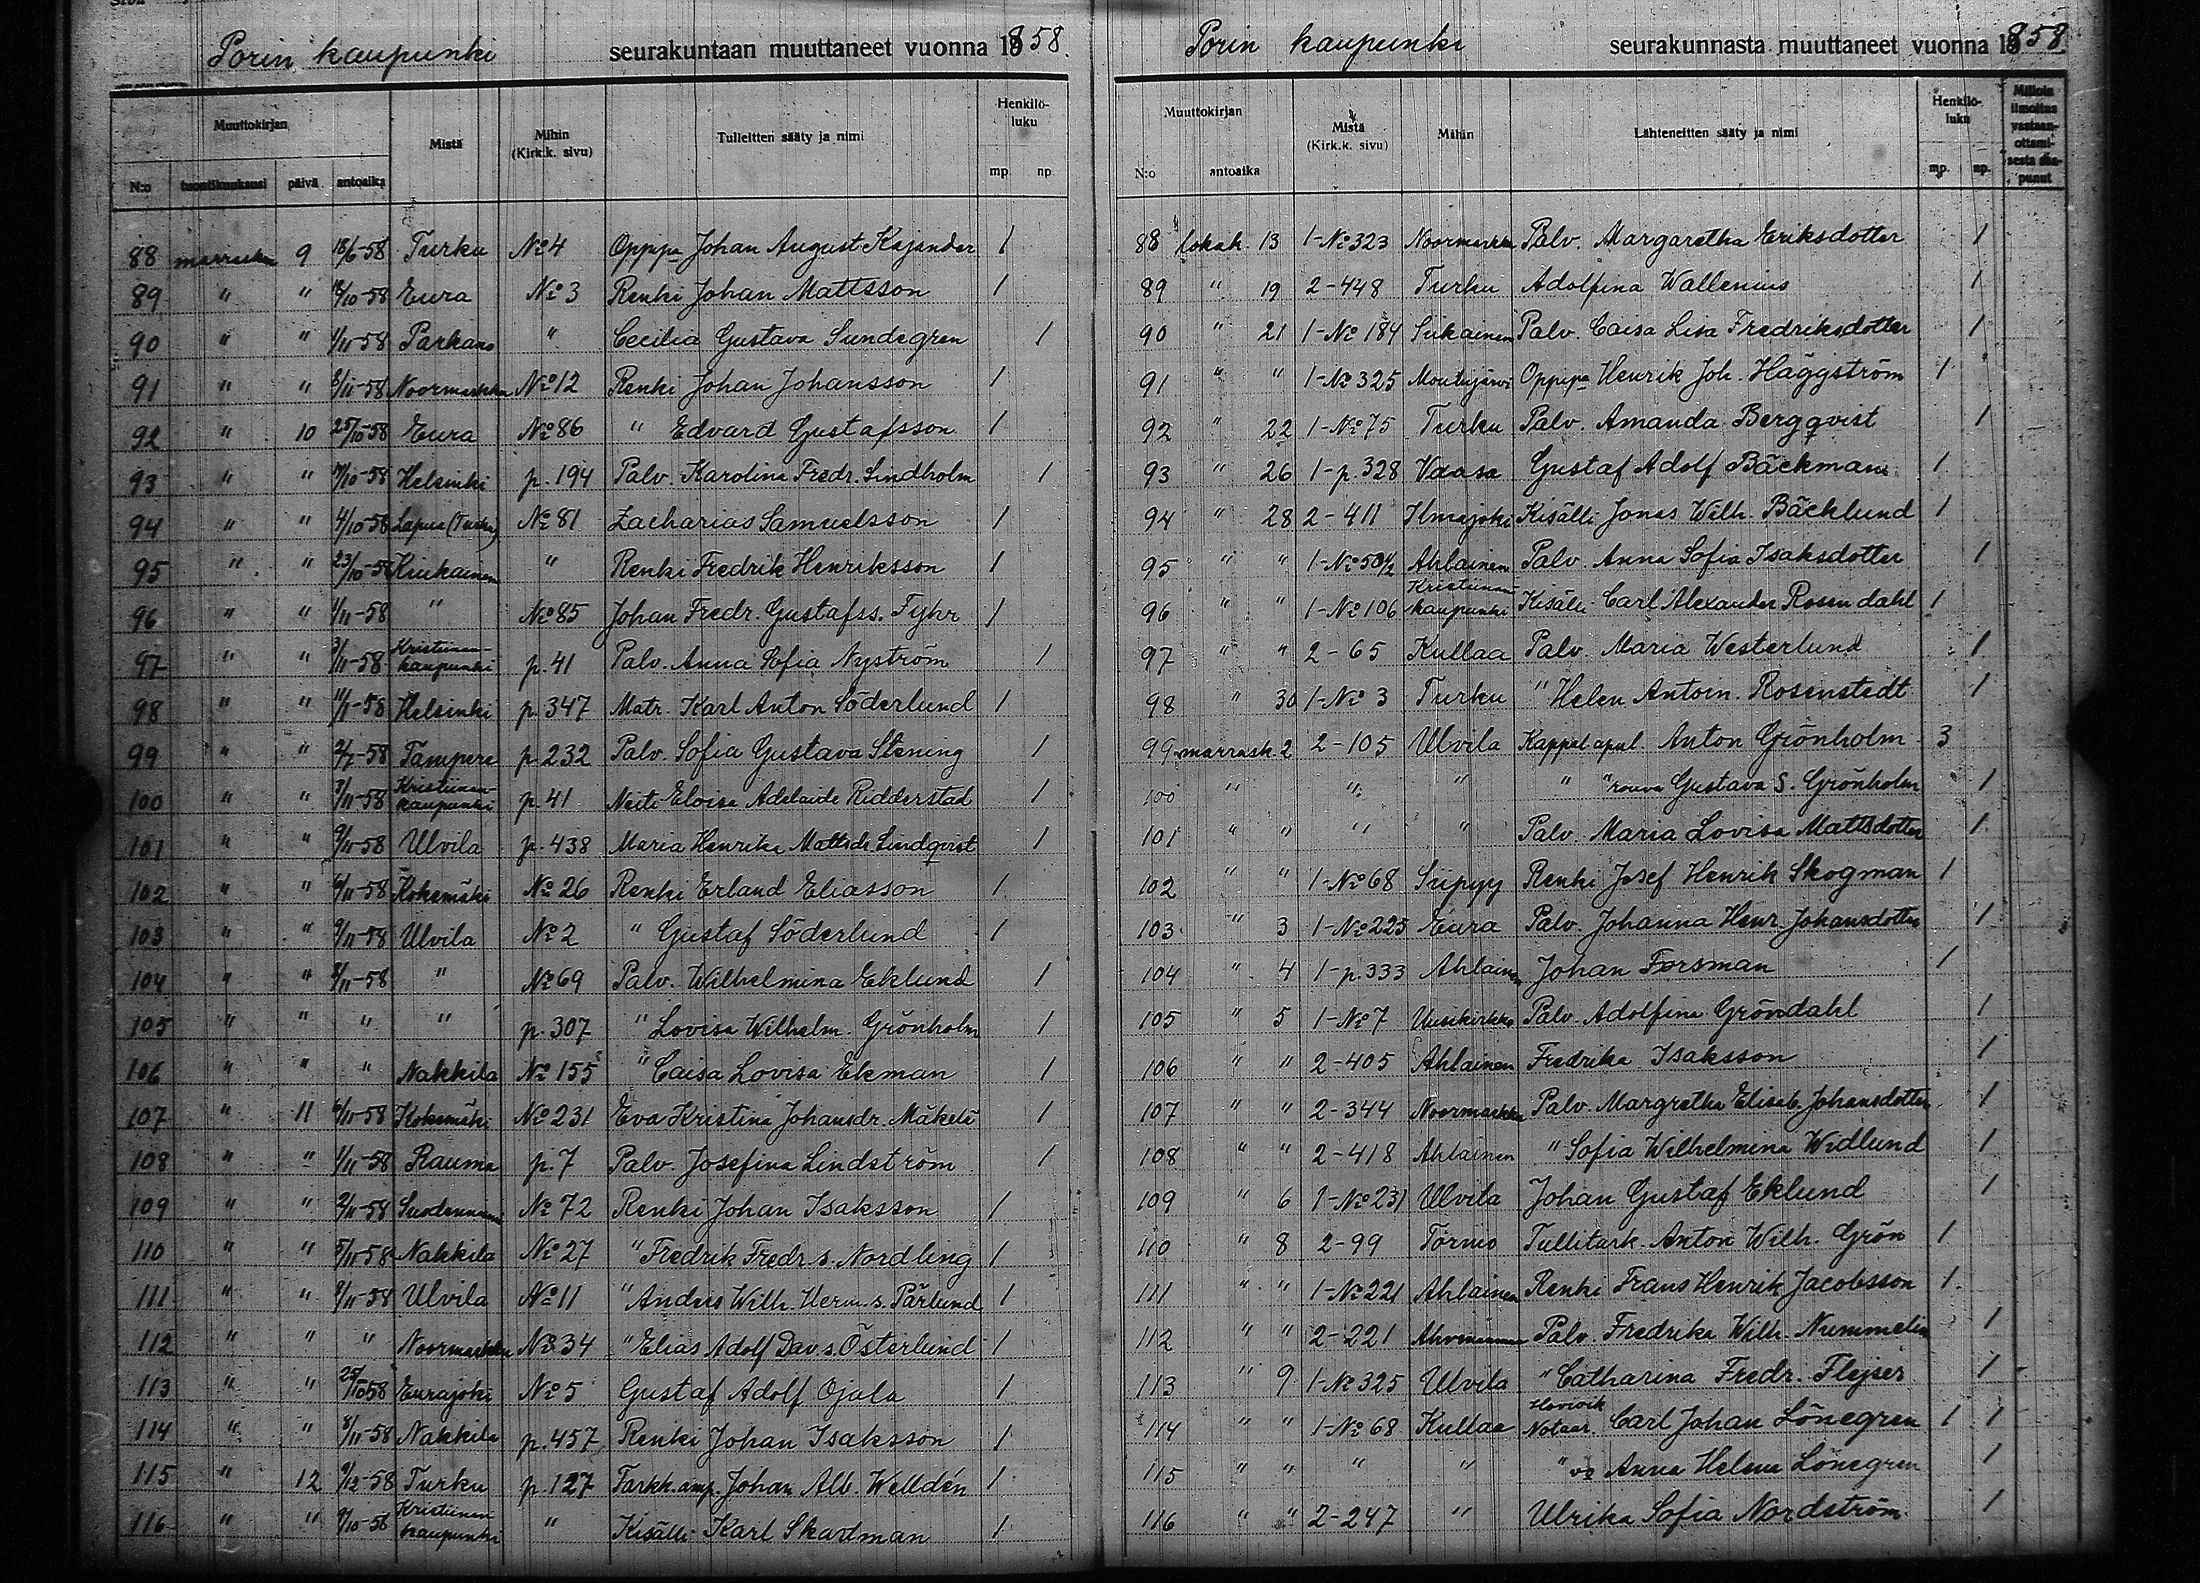 Porin kaupunki seurakuntaan muuttaneet vuonna 1858.
Muuttokirjan Mistä Mihin (Kirk.k. sivu) Tulleitten sääty ja nimi Henkilö-luku
N:o tuontikuukausi päivä antoaika mp. np.
88 marrasku 9 18/6-58 Turku No 4 Opppa Johan August Kajander 1
89 " " 18/10-58 Eura No 3 Renki Johan Mattsson 1
90 " " 1/11-58 Parkano " Cecilia Gustava Sundegren 1
91 " " 8/11-58 Noormarkku No 12 Renki Johan Johansson 1
92 " 10 25/10-58 Eura No 86 " Edvard Gustafsson 1
93 " " 7/10-58 Helsinki p. 194 Palv. Karolina Fredr. Lindholm 1
94 " " 4/10-58 Lapua (Turku) No 81 Zacharias Samuelsson 1
95 " " 23/10-58 Kiukainen " Renki Fredrik Henriksson 1
96 " " 1/11-58 " No 85 Johan Fredr. Gustafss. Fyhr 1
97 " " 3/11-58 Kristiinan-kaupunki p. 41 Palv. Anna Sofia Nyström 1
98 " " 11/11-58 Helsinki p. 347 Matr. Karl Anton Söderlund 1
99 " " 2/7-58 Tampere p. 232 Palv. Sofia Gustava Stening 1
100 " " 3/11-58 Kristiinan-kaupunki p. 41 Neiti Eloise Adelaide Ridderstad 1
101 " " 9/11-58 Ulvila p. 438 Maria Henrika Mattsdr. Lindqvist 1
102 " " 6/11-58 Kokemäki No 26 Renki Erland Eliasson 1
103 " " 9/11-58 Ulvila No 2 " Gustaf Söderlund 1
104 " " 8/11-58 " No 69 Palv. Wilhelmina Eklund 1
105 " " " " p. 307 " Lovisa Wilhelm. Grönholm 1
106 " " " Nakkila No 155 " Caisa Lovisa Ekman 1
107 " 11 6/11-58 Kokemäki No 231 Eva Kristina Johansdr. Mäkelä 1
108 " " 1/11-58 Rauma p. 7 Palv. Josefina Lindström 1
109 " " 2/11-58 Suodenniemi No 72 Renki Johan Isaksson 1
110 " " 5/11-58 Nakkila No 27 " Fredrik Fredr. s. Nordling 1
111 " " 9/11-58 Ulvila No 11 " Anders Wilh. Herm. s. Pärlund 1
112 " " " Noormarkku No 34 " Elias Adolf Dav. s. Österlund 1
113 " " 25/10 58 Eurajoki No 5 Gustaf Adolf Ojala 1
114 " " 8/11-58 Nakkila p. 457 Renki Johan Isaksson 1
115 " 12 9/12-58 Turku p. 127 Farkk. amp. Johan Alb. Welldén 1
116 " " 9/10-58 Kristiinan kaupunki " Kisälli Karl Skartman 1
Porin kaupunki seurakunnasta muuttaneet vuonna 1858.
Muuttokirjan Mistä (Kirk.k. sivu) Mihin Lähteneitten sääty ja nimi Henkilö-luku Milloin ilmoitus vastaan-ottami-sesta saa-punut
N:o antoaika mp. np.
88 lokak. 13 1-No 323 Noormarkku Palv. Margaretha Eriksdotter 1
89 " 19 2-448 Turku Adolfina Wallenius 1
90 " 21 1-No 184 Siikainen Palv. Caisa Lisa Fredriksdotter 1
91 " " 1-No 325 Mouhijärvi Opppa Henrik Joh. Häggström 1
92 " 22 1-No 75 Turku Palv. Amanda Bergqvist 1
93 " 26 1-p. 328 Vaasa Gustaf Adolf Bäckman 1
94 " 28 2-411 Ilmajoki Kisälli Jonas Wilh. Bäcklund 1
95 " " 1-No 50 1/2 Ahlainen Palv. Anna Sofia Isaksdotter 1
96 " " 1-No 106 Kristiinan-kaupunki Kisälli Carl Alexander Rosendahl 1
97 " " 2-65 Kullaa Palv. Maria Westerlund 1
98 " 30 1-No 3 Turku " Helen Antoin. Rosenstedt 1
99 marrask. 2 2-105 Ulvila Kappal. apul. Anton Grönholm 3
100 " " " " " rouva Gustava S. Grönholm 1
101 " " " " Palv. Maria Lovisa Mattsdotter 1
102 " " 1-No 68 Siipyy Renki Josef Henrik Skogman 1
103 " 3 1-No 225 Eura Palv. Johanna Henr. Johansdotter 1
104 " 4 1-p. 333 Ahlainen Johan Forsman 1
105 " 5 1-No 7 Uusikirkko Palv. Adolfina Gröndahl 1
106 " " 2-405 Ahlainen Fredrika Isaksson 1
107 " " 2-344 Noormarkku Palv. Margretha Elisab. Johansdotter 1
108 " " 2-418 Ahlainen " Sofia Wilhelmina Widlund 1
109 " 6 1-No 231 Ulvila Johan Gustaf Eklund 1
110 " 8 2-99 Tornio Tullitark. Anton Wilh. Grön 1
111 " " 1-No 221 Ahlainen Renki Frans Henrik Jacobsson 1
112 " " 2-221 Ahvenanmaa Palv. Fredrika Wilh. Nummelin 1
113 " 9 1-No 325 Ulvila " Catharina Fredr. Flejser 1
114 " " 1-No 68 Kullaa Hovioik Notaar. Carl Johan Lönegren 1 1
115 " " " " " va Anna Helena Lönegren 1
116 " " 2-247 " Ulrika Sofia Nordström 1